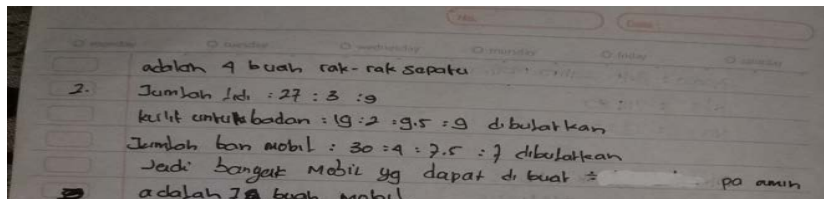 No.
Date
monday tuesday wednesday thursday friday saturday
adalah 4 buah rak-rak sepatu
2. Jumlah lidi : 27 : 3 : 9
kulit untuk badan : 19 : 2 : 9.5 : 9 dibulatkan
Jumlah ban mobil : 30 : 4 : 7.5 : 7 dibulatkan
Jadi banyak mobil yg dapat di buat pa amin
adalah 7 buah mobil